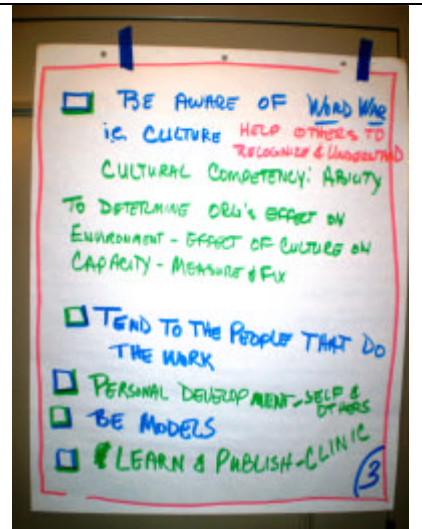 BE AWARE OF WORD WAR
i.e. CULTURE HELP OTHERS TO
RECOGNIZE & UNDERSTAND
CULTURAL COMPETENCY: ABILITY
TO DETERMINE ORG'S EFFECT ON
ENVIRONMENT - EFFECT OF CULTURE ON
CAPACITY - MEASURE & FIX
TEND TO THE PEOPLE THAT DO
THE WORK
PERSONAL DEVELOPMENT - SELF &
OTHERS
BE MODELS
LEARN & PUBLISH - CLINIC
3